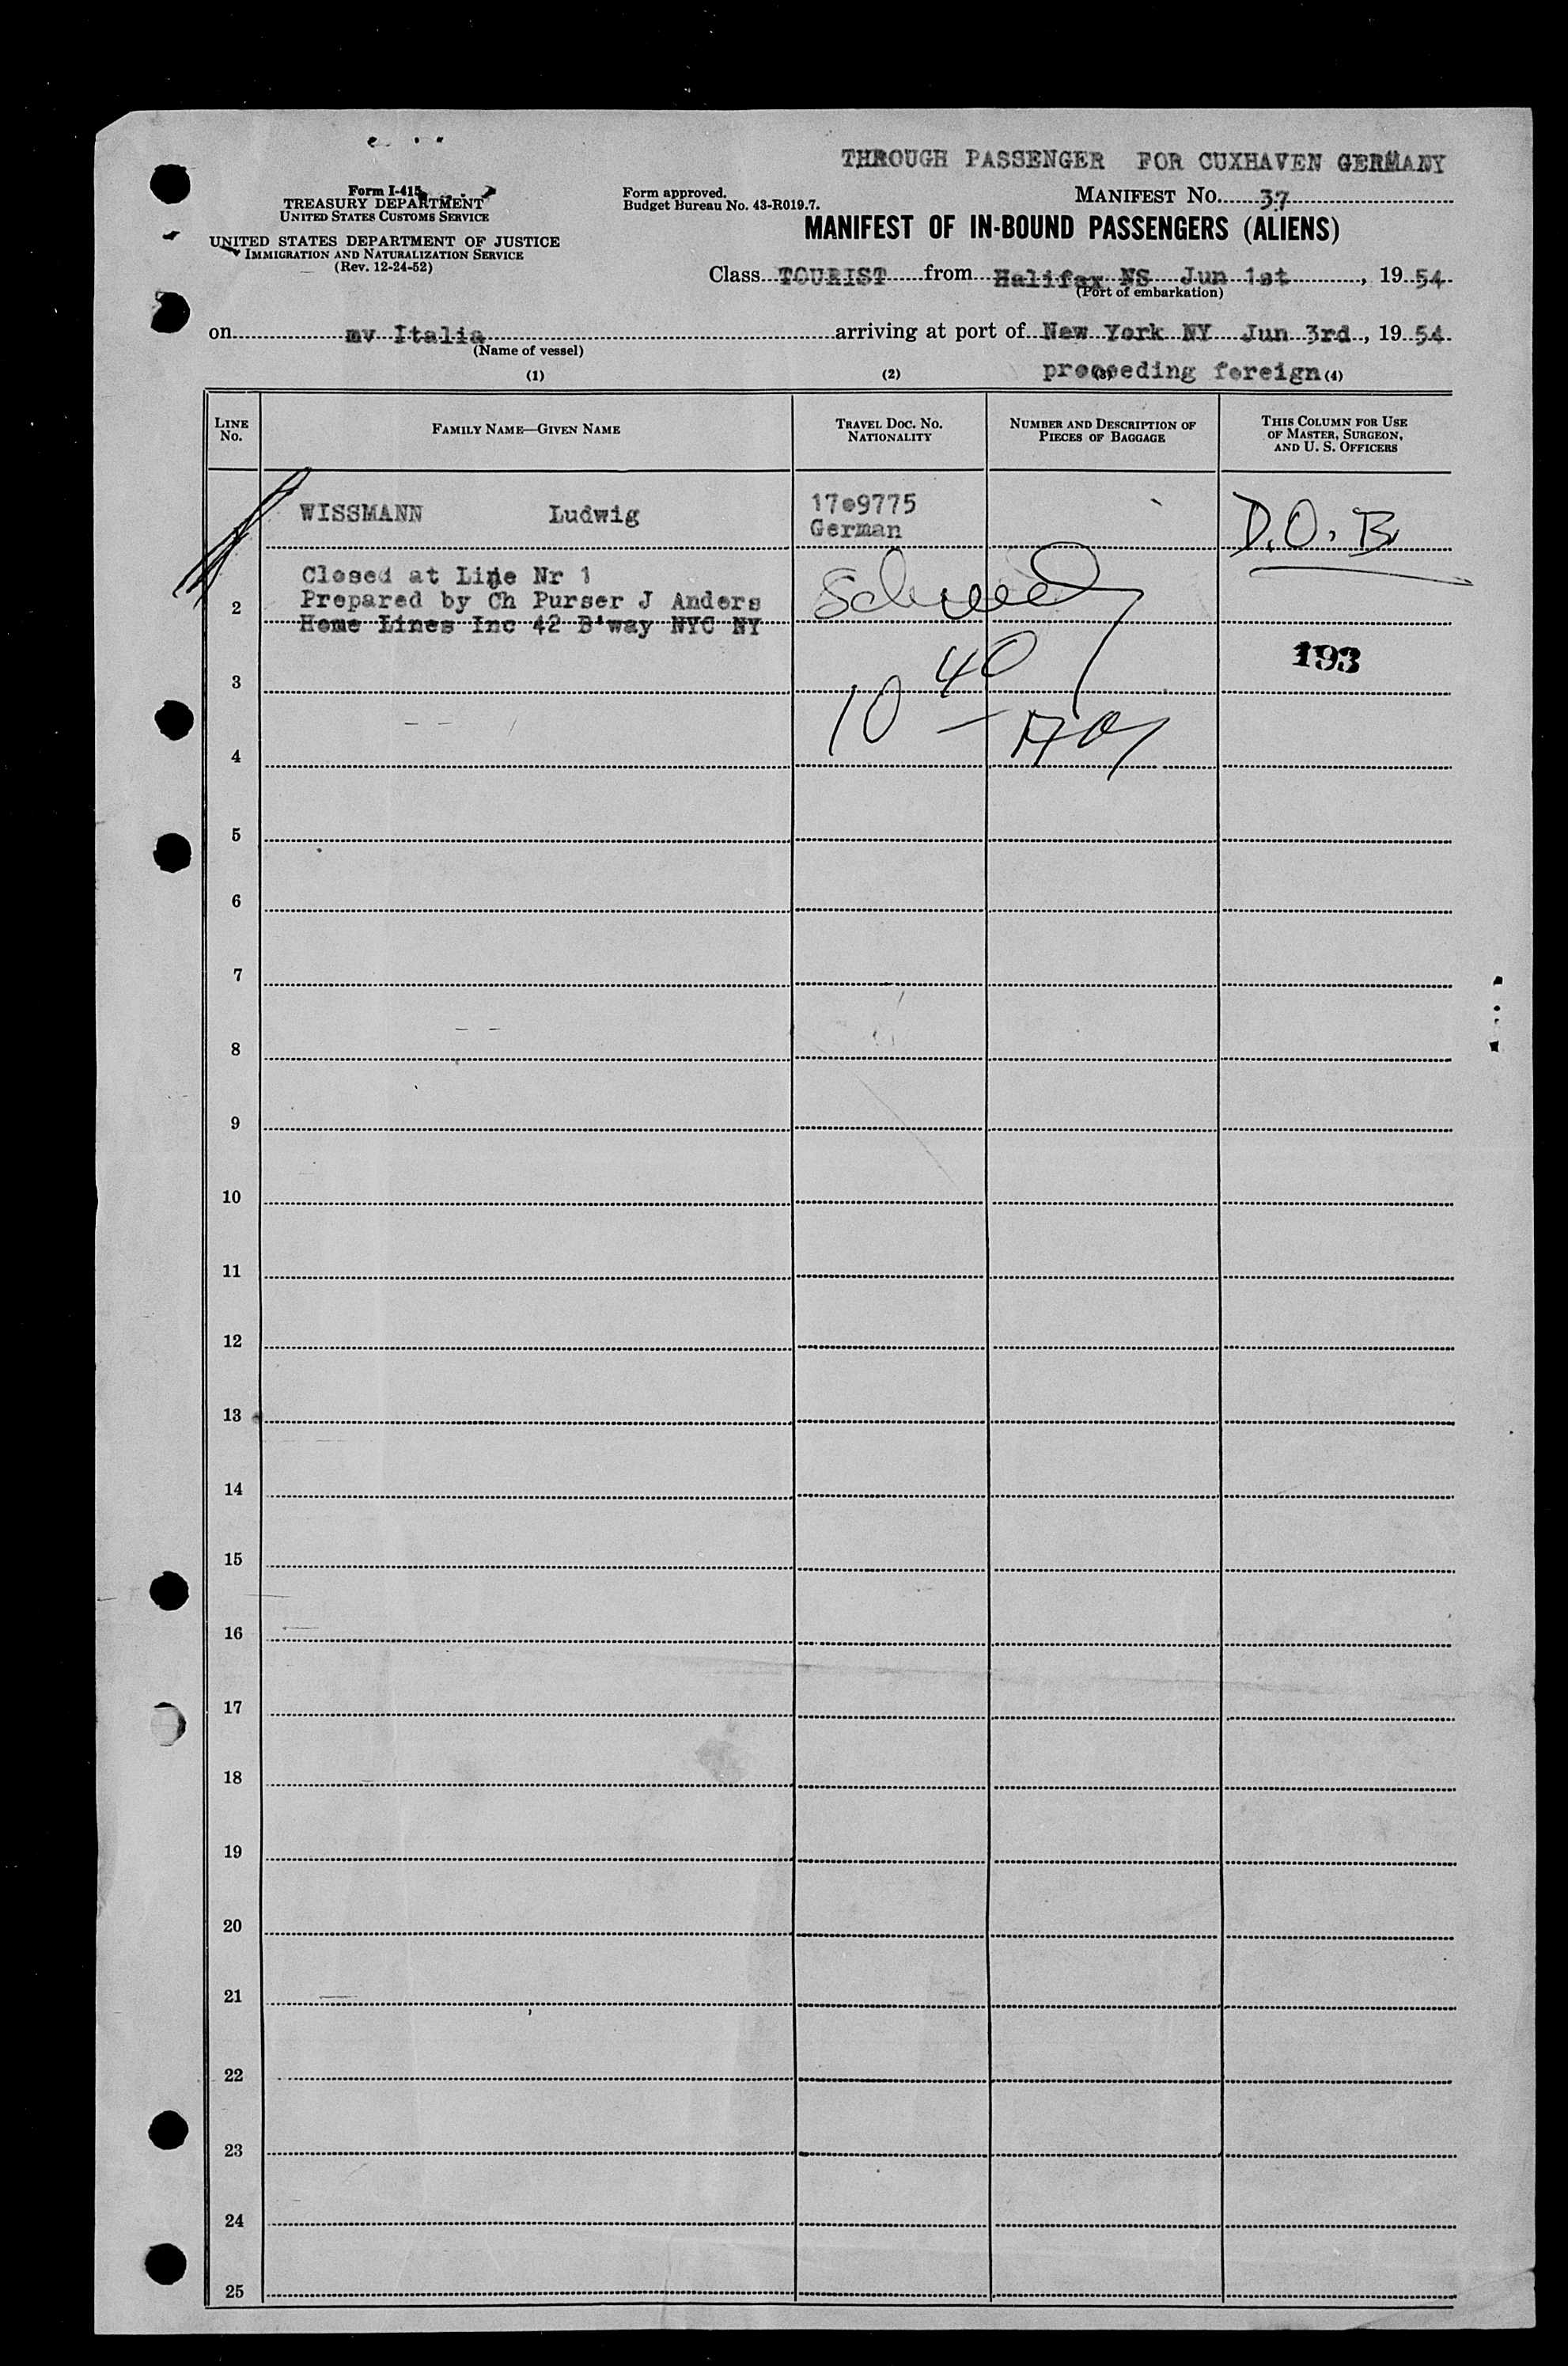 THROUGH PASSENGER FOR CUXHAVEN GERMANY
Form I-415
TREASURY DEPARTMENT
UNITED STATES CUSTOMS SERVICE
UNITED STATES DEPARTMENT OF JUSTICE
IMMIGRATION AND NATURALIZATION SERVICE
(Rev. 12-24-52)
Form approved.
Budget Bureau No. 43-R019.7.
MANIFEST NO. 37
MANIFEST OF IN-BOUND PASSENGERS (ALIENS)
Class TOURIST from Halifax NS Jun 1st, 19 54
(Port of embarkation)
on mv Italia arriving at port of New York NY Jun 3rd, 19 54
(Name of vessel)
proceeding foreign
(1) (2) (3) (4)
LINE NO. FAMILY NAME—GIVEN NAME TRAVEL DOC. NO. NATIONALITY NUMBER AND DESCRIPTION OF PIECES OF BAGGAGE THIS COLUMN FOR USE OF MASTER, SURGEON, AND U. S. OFFICERS
1 WISSMANN Ludwig 17 9775 D.O.B.
German
Closed at Line Nr 1
2 Prepared by Ch Purser J Anders
Home Lines Inc 42 B'way NYC NY
193
3 40
10
4
5
6
7
8
9
10
11
12
13
14
15
16
17
18
19
20
21
22
23
24
25